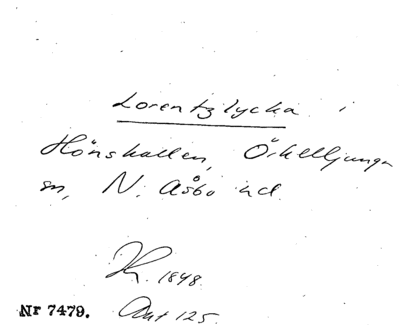 Lorentzlycka i
Hönshallen, Örkelljunga
sn, N. Åsbo hd.
K. 1848.
Nr 7479. Akt 125.